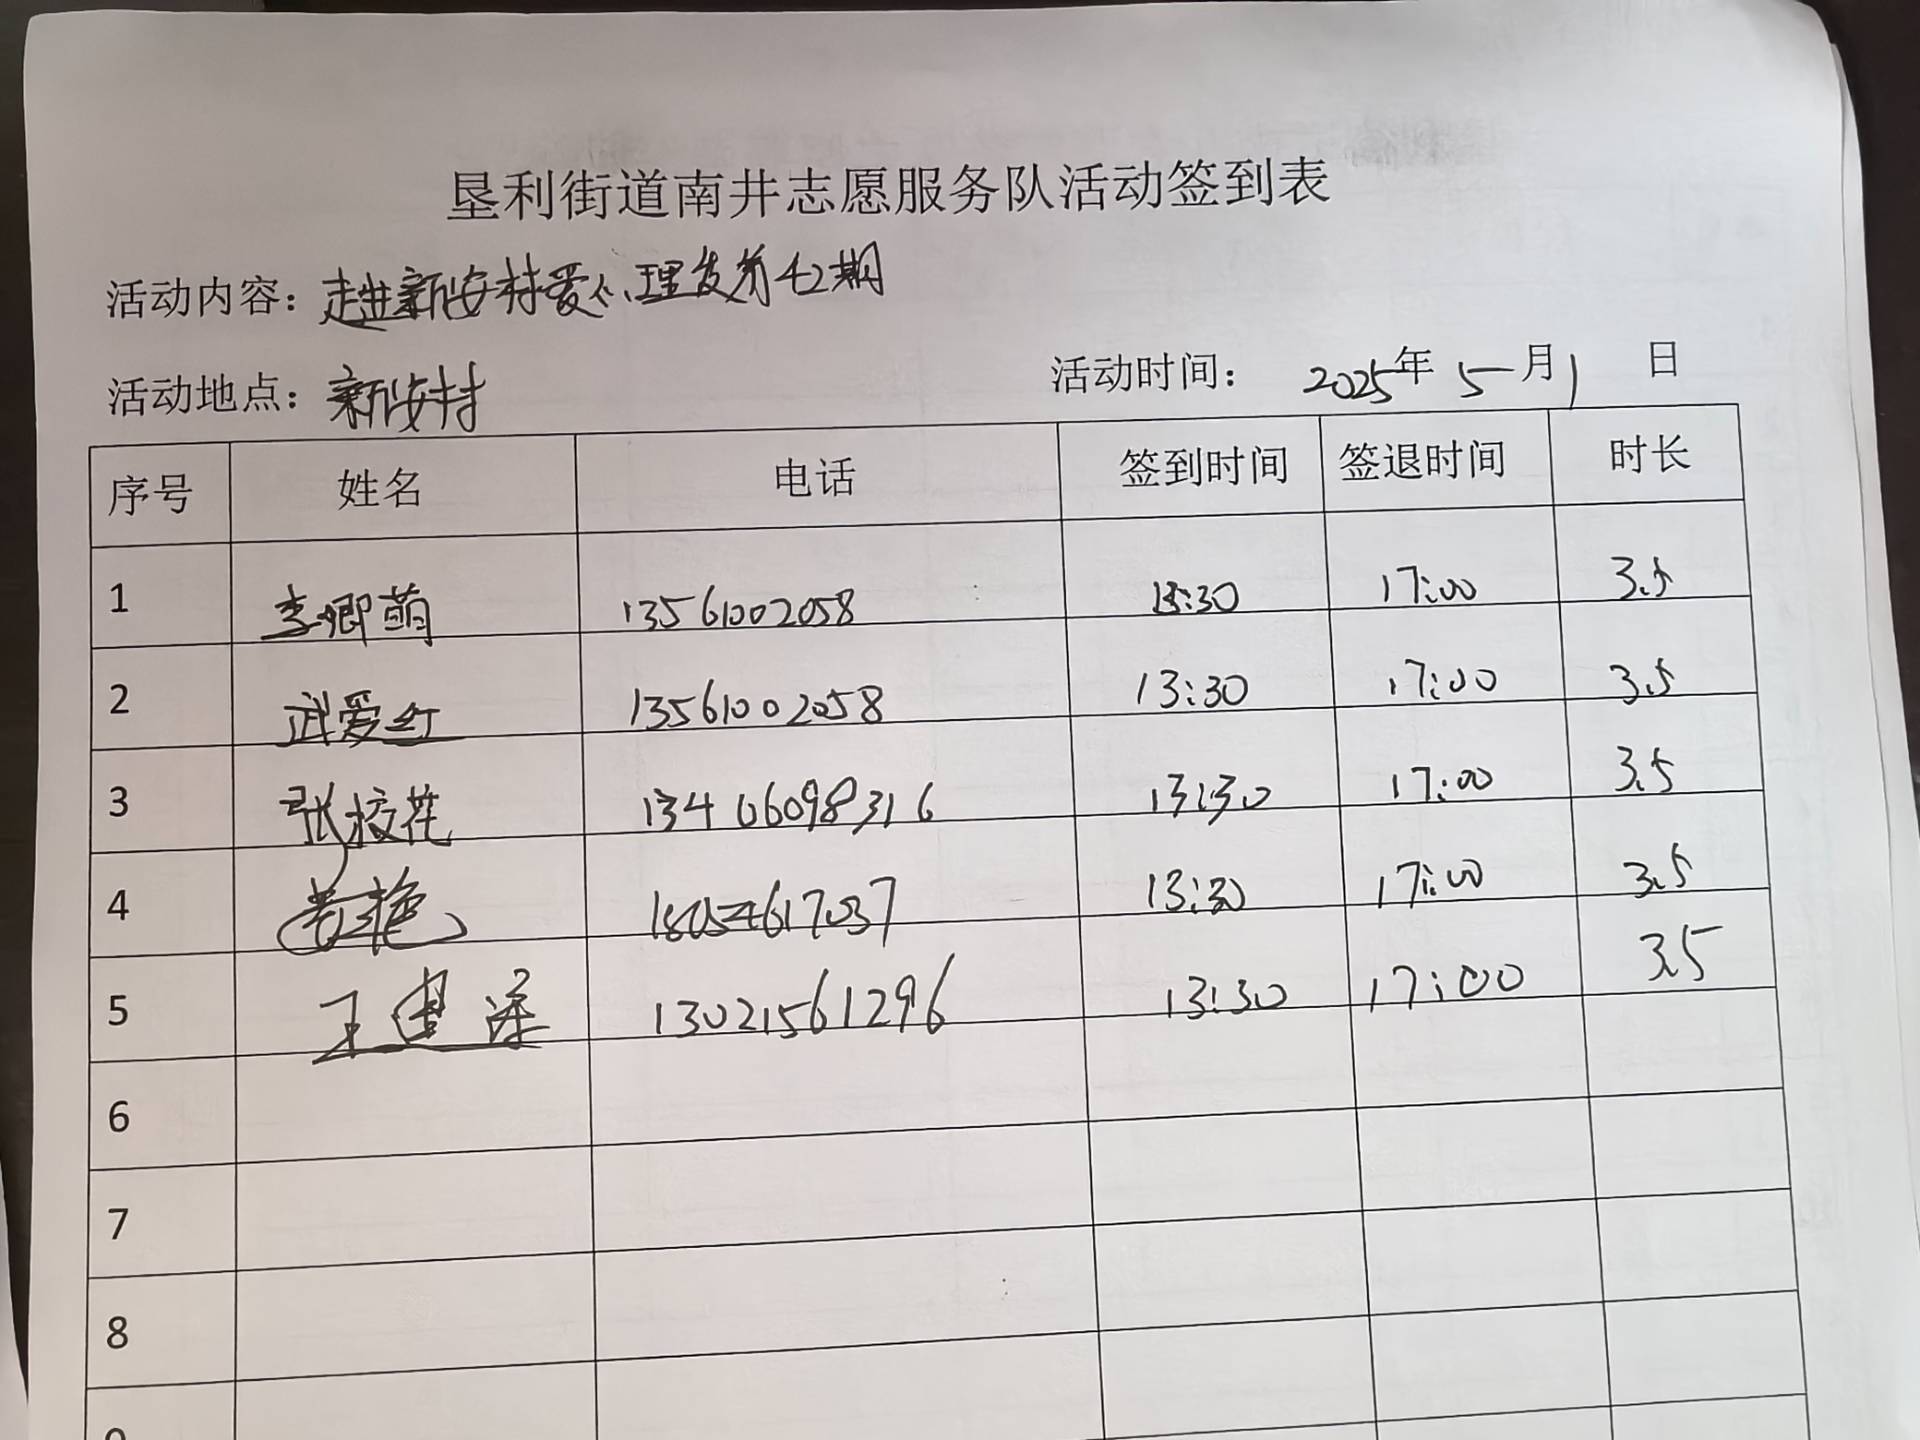 垦利街道南井志愿服务队活动签到表
活动内容：走进新安村爱心理发第42期
活动地点：新安村 活动时间： 2025年 5月1 日
序号 姓名 电话 签到时间 签退时间 时长
1 李卿萌 13561002058 13:30 17:00 3.5
2 武爱红 13561002058 13:30 17:00 3.5
3 张校花 13406098316 13:30 17:00 3.5
4 艳 18054617037 13:30 17:00 3.5
5 王 13021561296 13:30 17:00 3.5
6
7
8